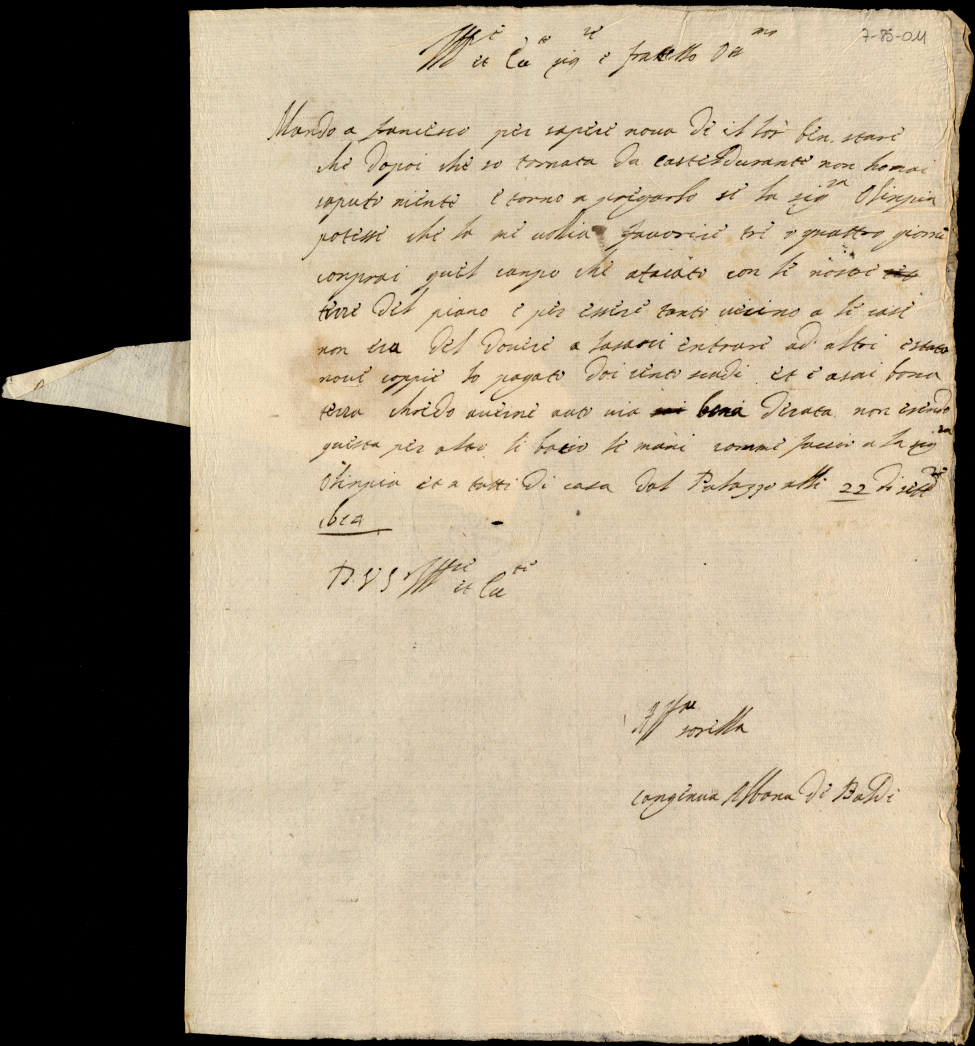 7-85-011
et e fratello
Mando a francesco per sapere nova de il lor ben stare
che dopoi che so tornata da casteldurante non ho mai
saputo niente e torno a pregarlo se la sig.ra Olinpia
potesse che la me vollia favorire tre o quattro giorni
conprai quel canpo che atacato con le nostre
terre del piano e per essere tanto vicino a le case
non era del dovere a lasarci entrare ad altri e stato
nove coppie lo pagato doi cento scudi et e asai bona
terra chredo averne auto una bona derata non esendo
questa per altro li bacio le mani comme faccio a la sig.ra
Olinpia et a tutti di casa dal Palazzo alli 22 di
1614
D. V. S. et
Aff.ma sorella
Albana de Baldi